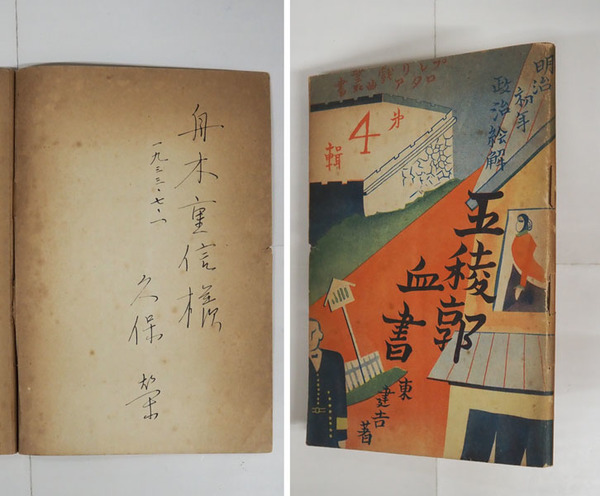 舟木重信様
一九三三・七・一
久保 栄
プロレタリア戯曲叢書
第
4
輯
明治
初年
政治絵解
五稜郭
血書
東建吉著